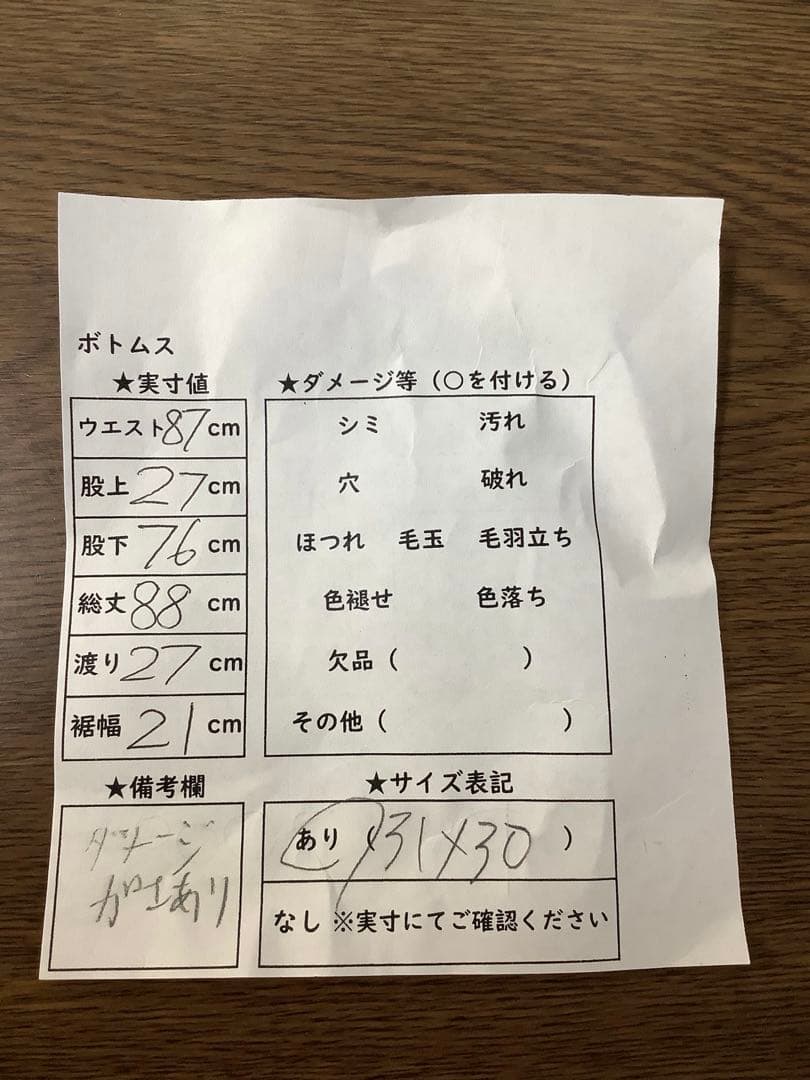 ボトムス
★実寸値
ウエスト87cm
股上27cm
股下76cm
総丈88cm
渡り27cm
裾幅21cm
★ダメージ等（○を付ける）
シミ 汚れ
穴 破れ
ほつれ 毛玉 毛羽立ち
色褪せ 色落ち
欠品（ ）
その他（ ）
★備考欄
ダメージ
加工あり
★サイズ表記
あり（31×30）
なし ※実寸にてご確認ください